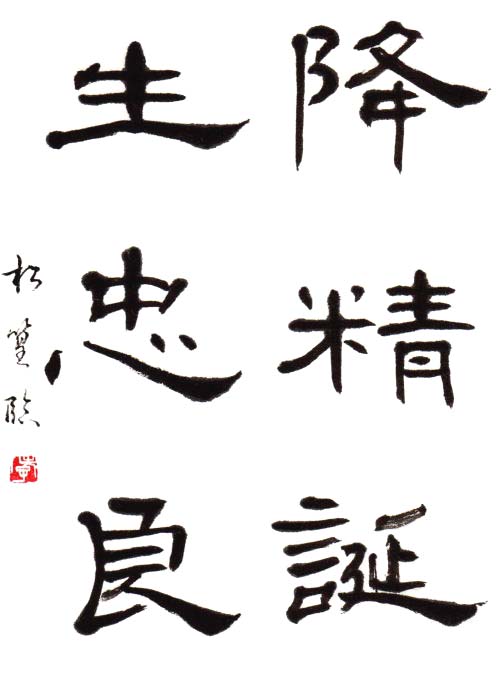 降精誕
生忠良
松篁臨